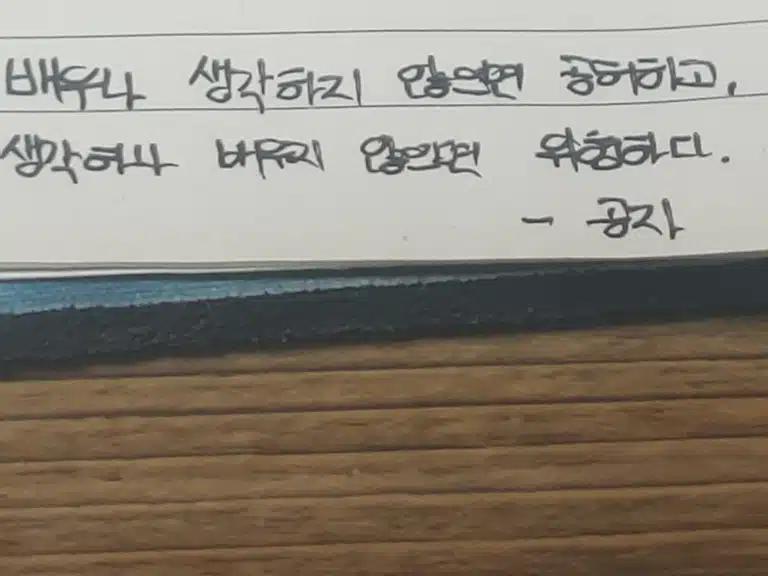 배우나 생각하지 않으면 공허하고,
생각하나 배우지 않으면 위험하다.
- 공자